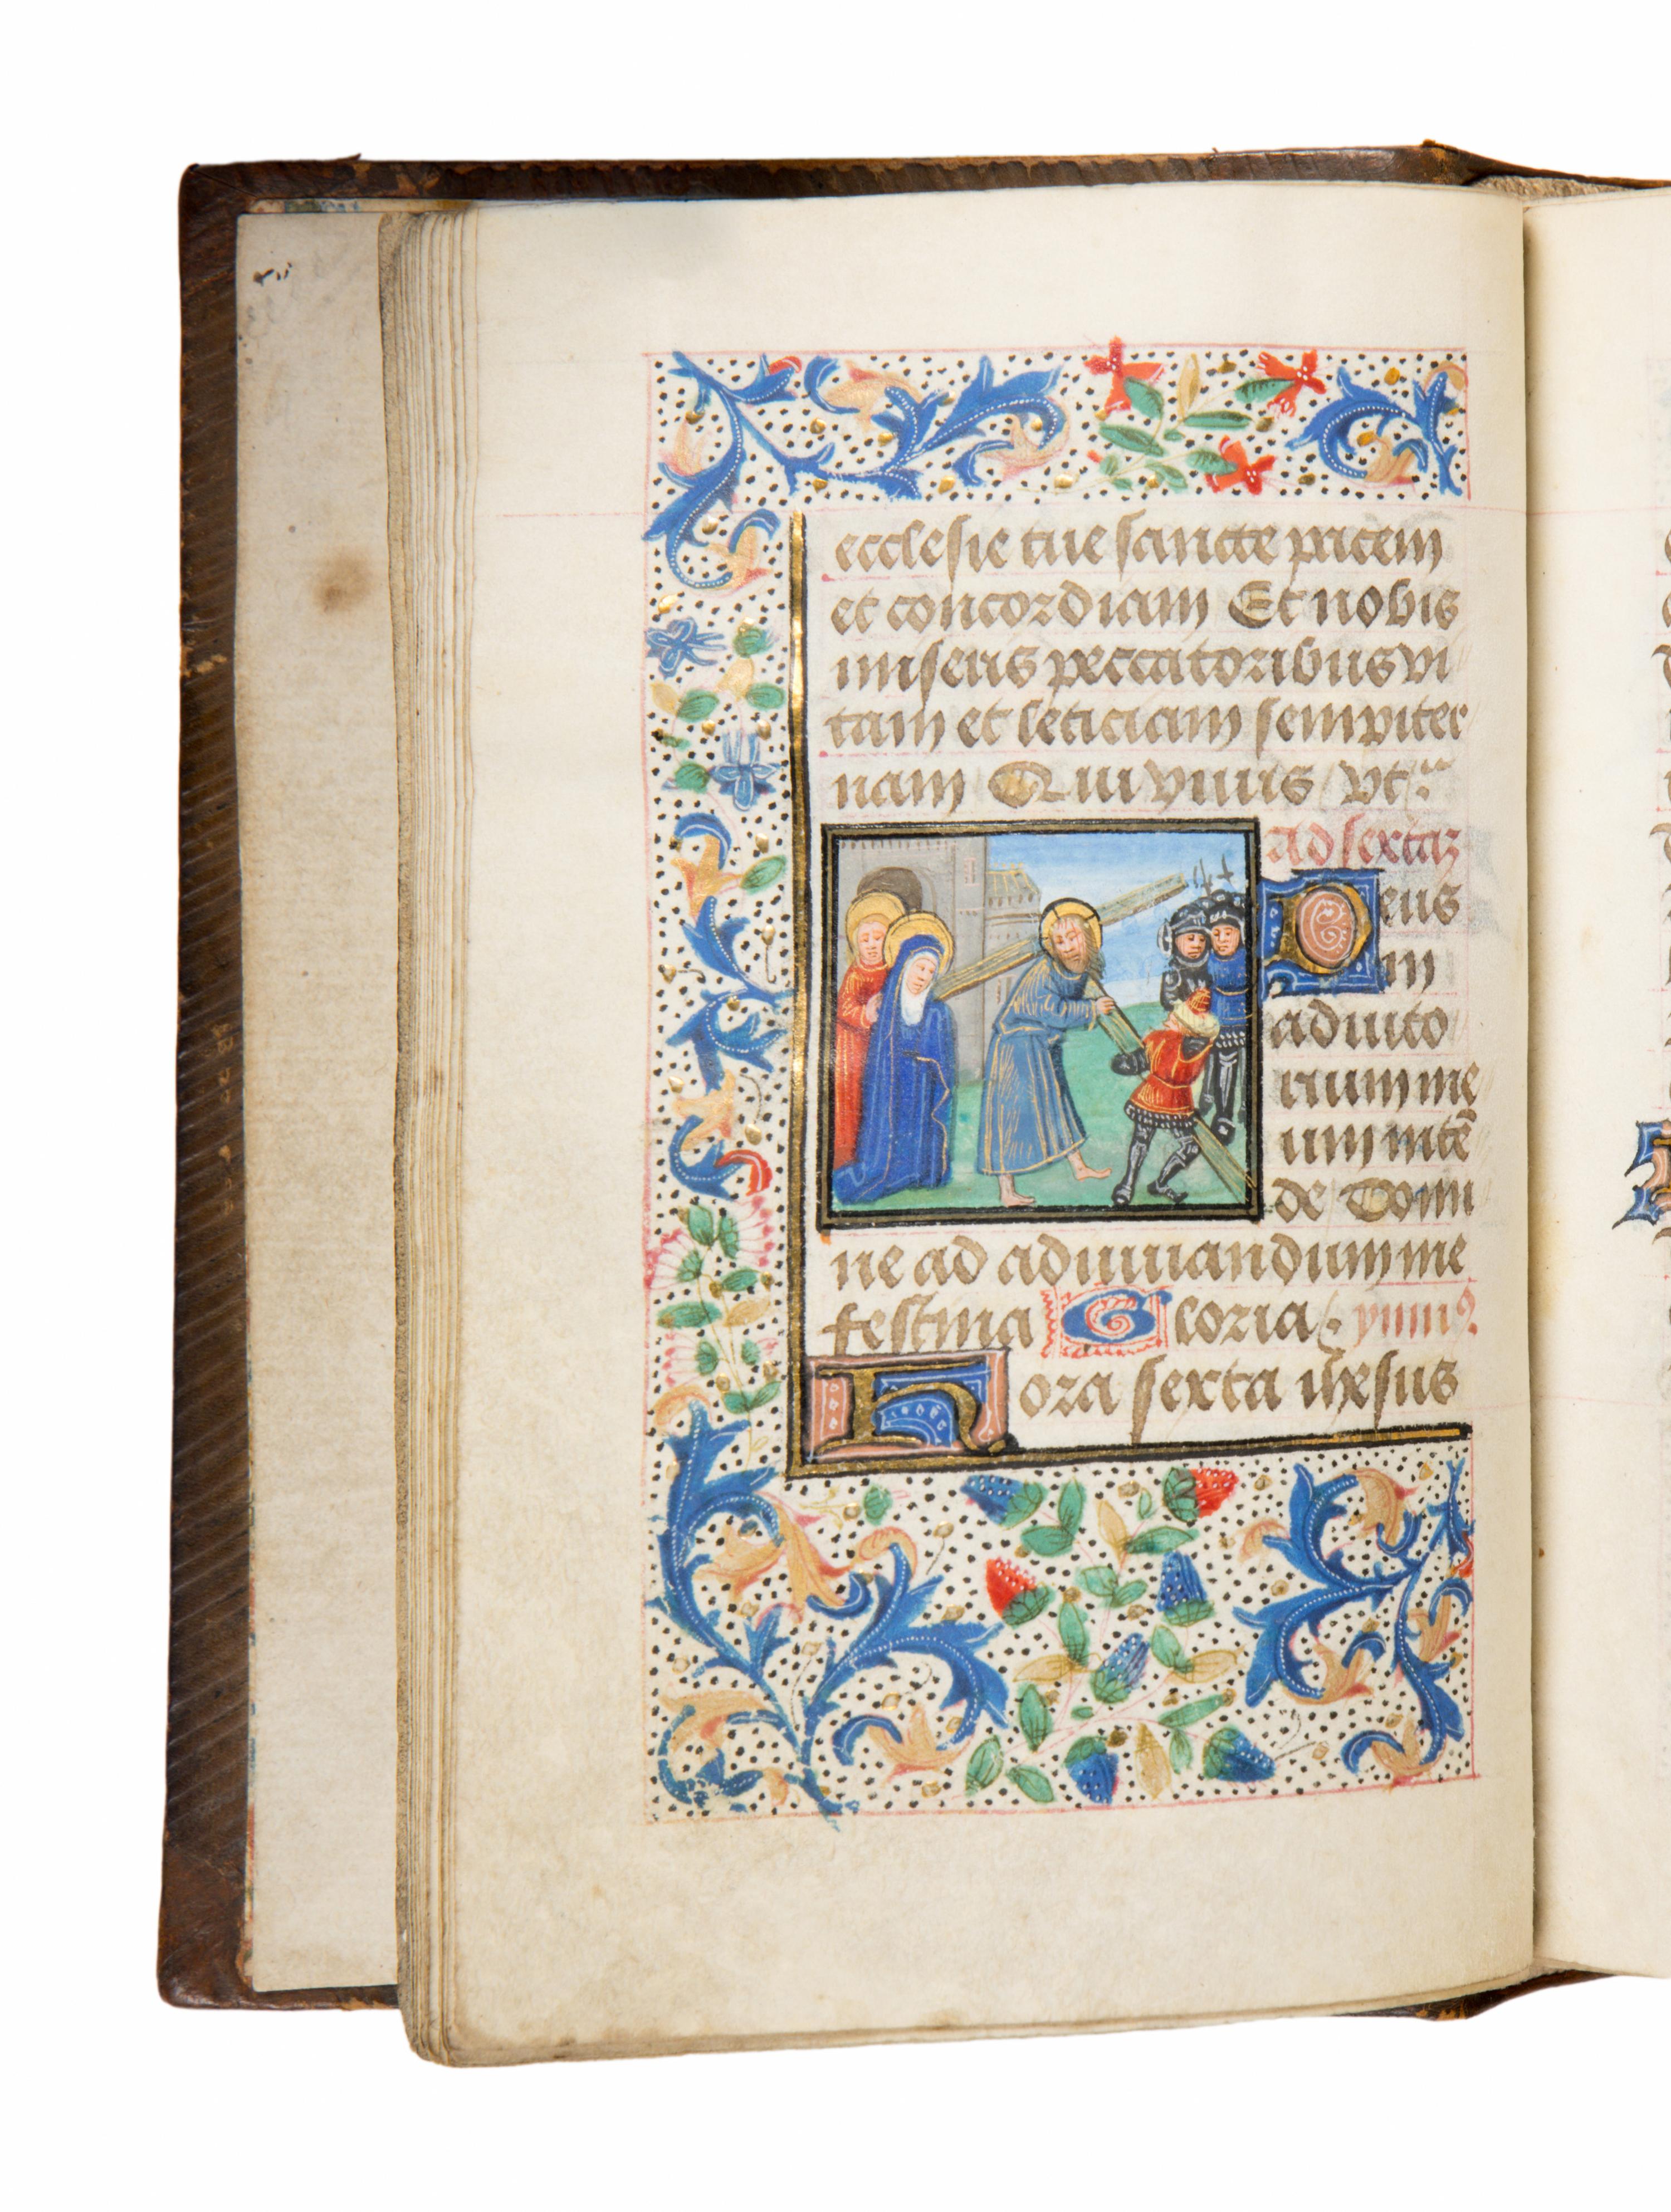 ecclesie tue sancte pacem
et concordiam Et nobis
miseris peccatoribus vi
tam et leticiam sempiter
nam Qui viuis vt
Ad sextaz
Deus
in
adiuto
rium me
um intē
de Domi
ne ad adiuuandum me
festina Gloria ymnꝰ
Hora sexta ihesus